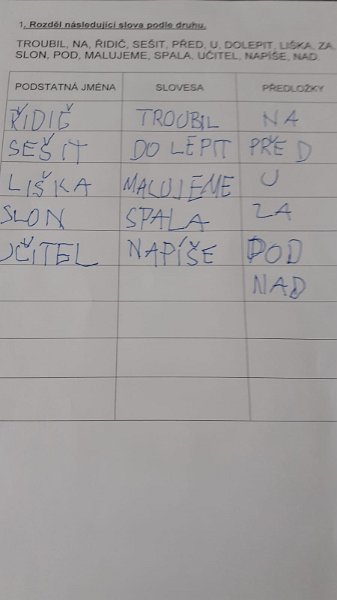 1. Rozděl následující slova podle druhu.
TROUBIL, NA, ŘIDIČ, SEŠIT, PŘED, U, DOLEPIT, LIŠKA, ZA,
SLON, POD, MALUJEME, SPALA, UČITEL, NAPÍŠE, NAD
PODSTATNÁ JMÉNA SLOVESA PŘEDLOŽKY
ŘIDIČ TROUBIL NA
SEŠIT DOLEPIT PŘED
LIŠKA MALUJEME U
SLON SPALA ZA
UČITEL NAPÍŠE POD
NAD